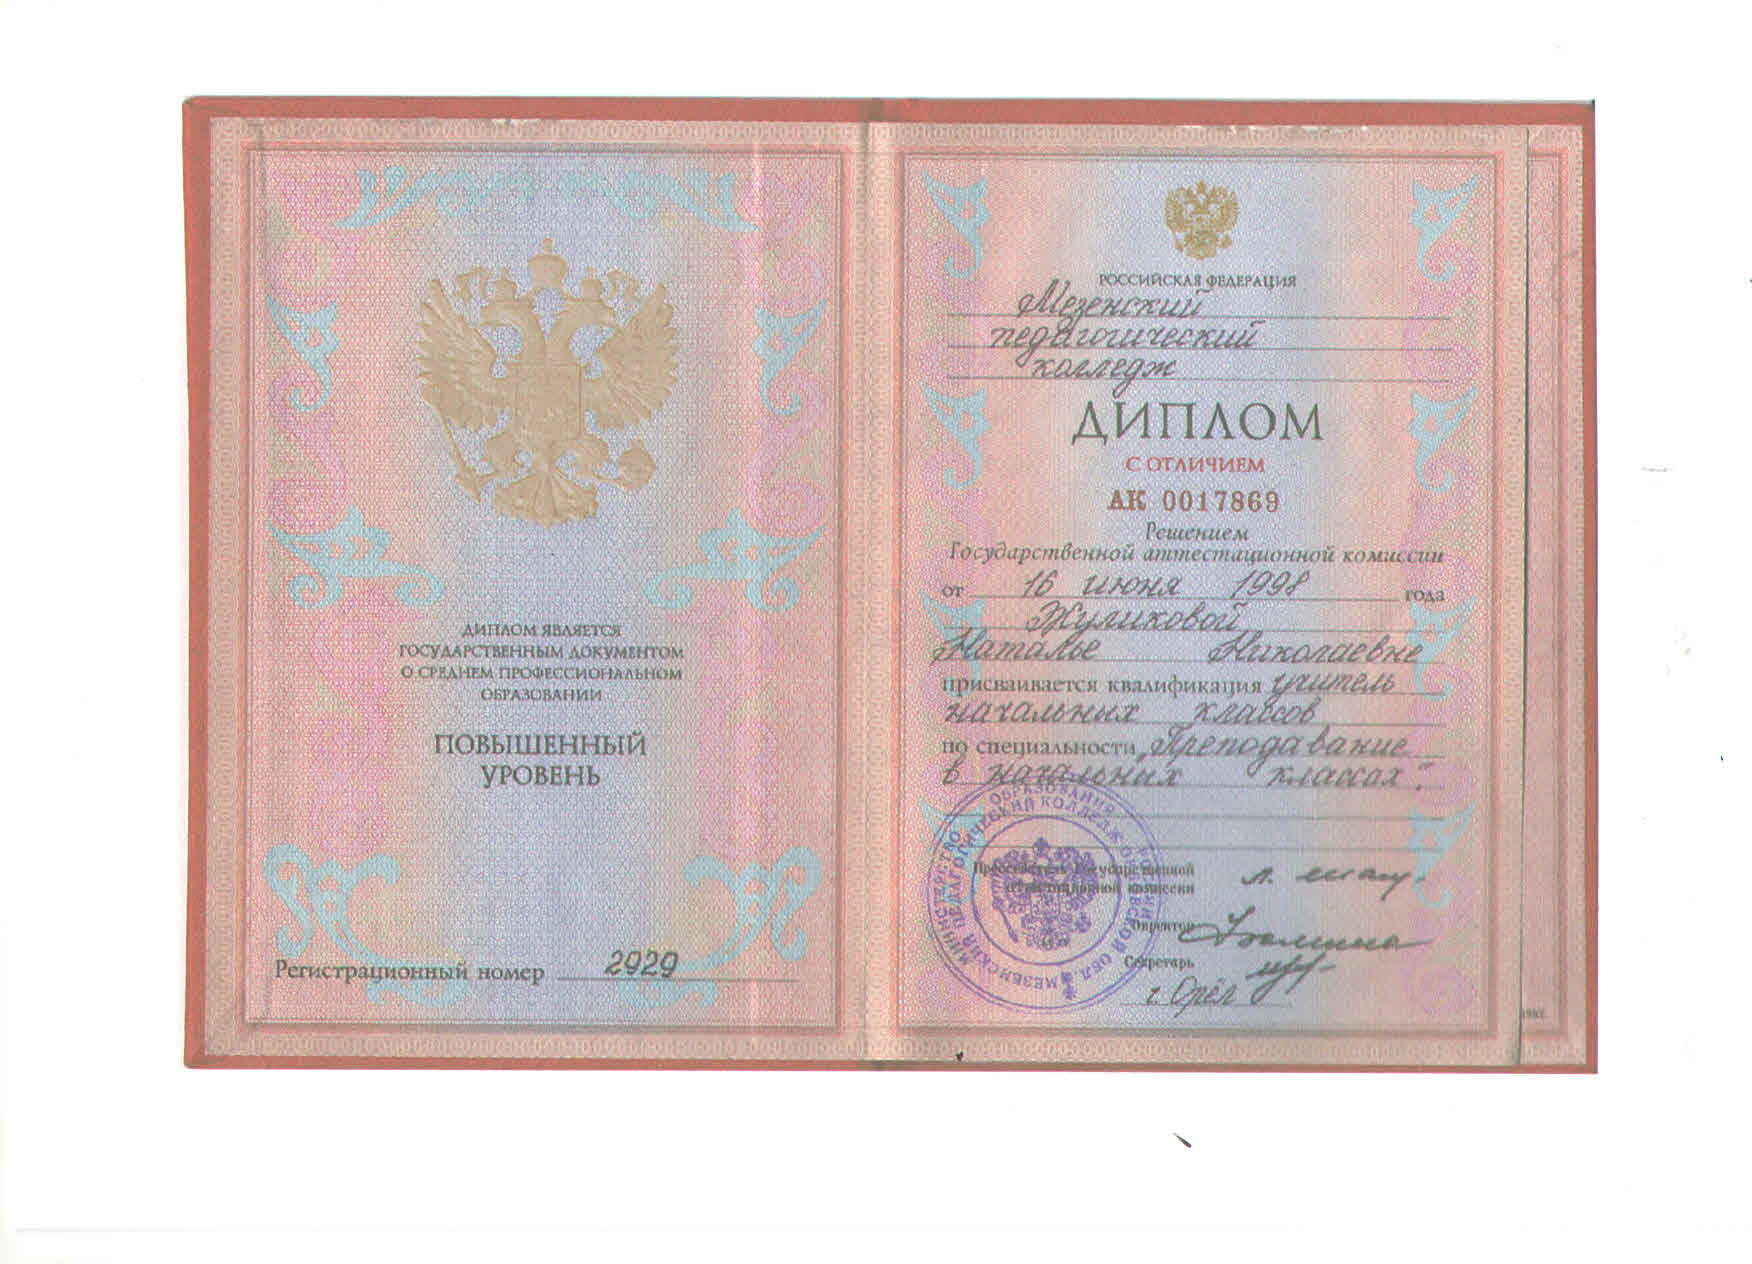 ДИПЛОМ ЯВЛЯЕТСЯ
ГОСУДАРСТВЕННЫМ ДОКУМЕНТОМ
О СРЕДНЕМ ПРОФЕССИОНАЛЬНОМ
ОБРАЗОВАНИИ
ПОВЫШЕННЫЙ
УРОВЕНЬ
Регистрационный номер 2929
РОССИЙСКАЯ ФЕДЕРАЦИЯ
Мезенский
педагогический
колледж
ДИПЛОМ
С ОТЛИЧИЕМ
АК 0017869
Решением
Государственной аттестационной комиссии
от 16 июня 1998 года
Жуликовой
Наталье Николаевне
присваивается квалификация учитель
начальных классов
по специальности „Преподавание
в начальных классах".
Председатель Государственной
аттестационной комиссии
Директор
Секретарь
г. Орёл
МИНИСТЕРСТВО ОБРАЗОВАНИЯ
МЕЗЕНСКИЙ ПЕДАГОГИЧЕСКИЙ КОЛЛЕДЖ ОРЛОВСКОЙ ОБЛ